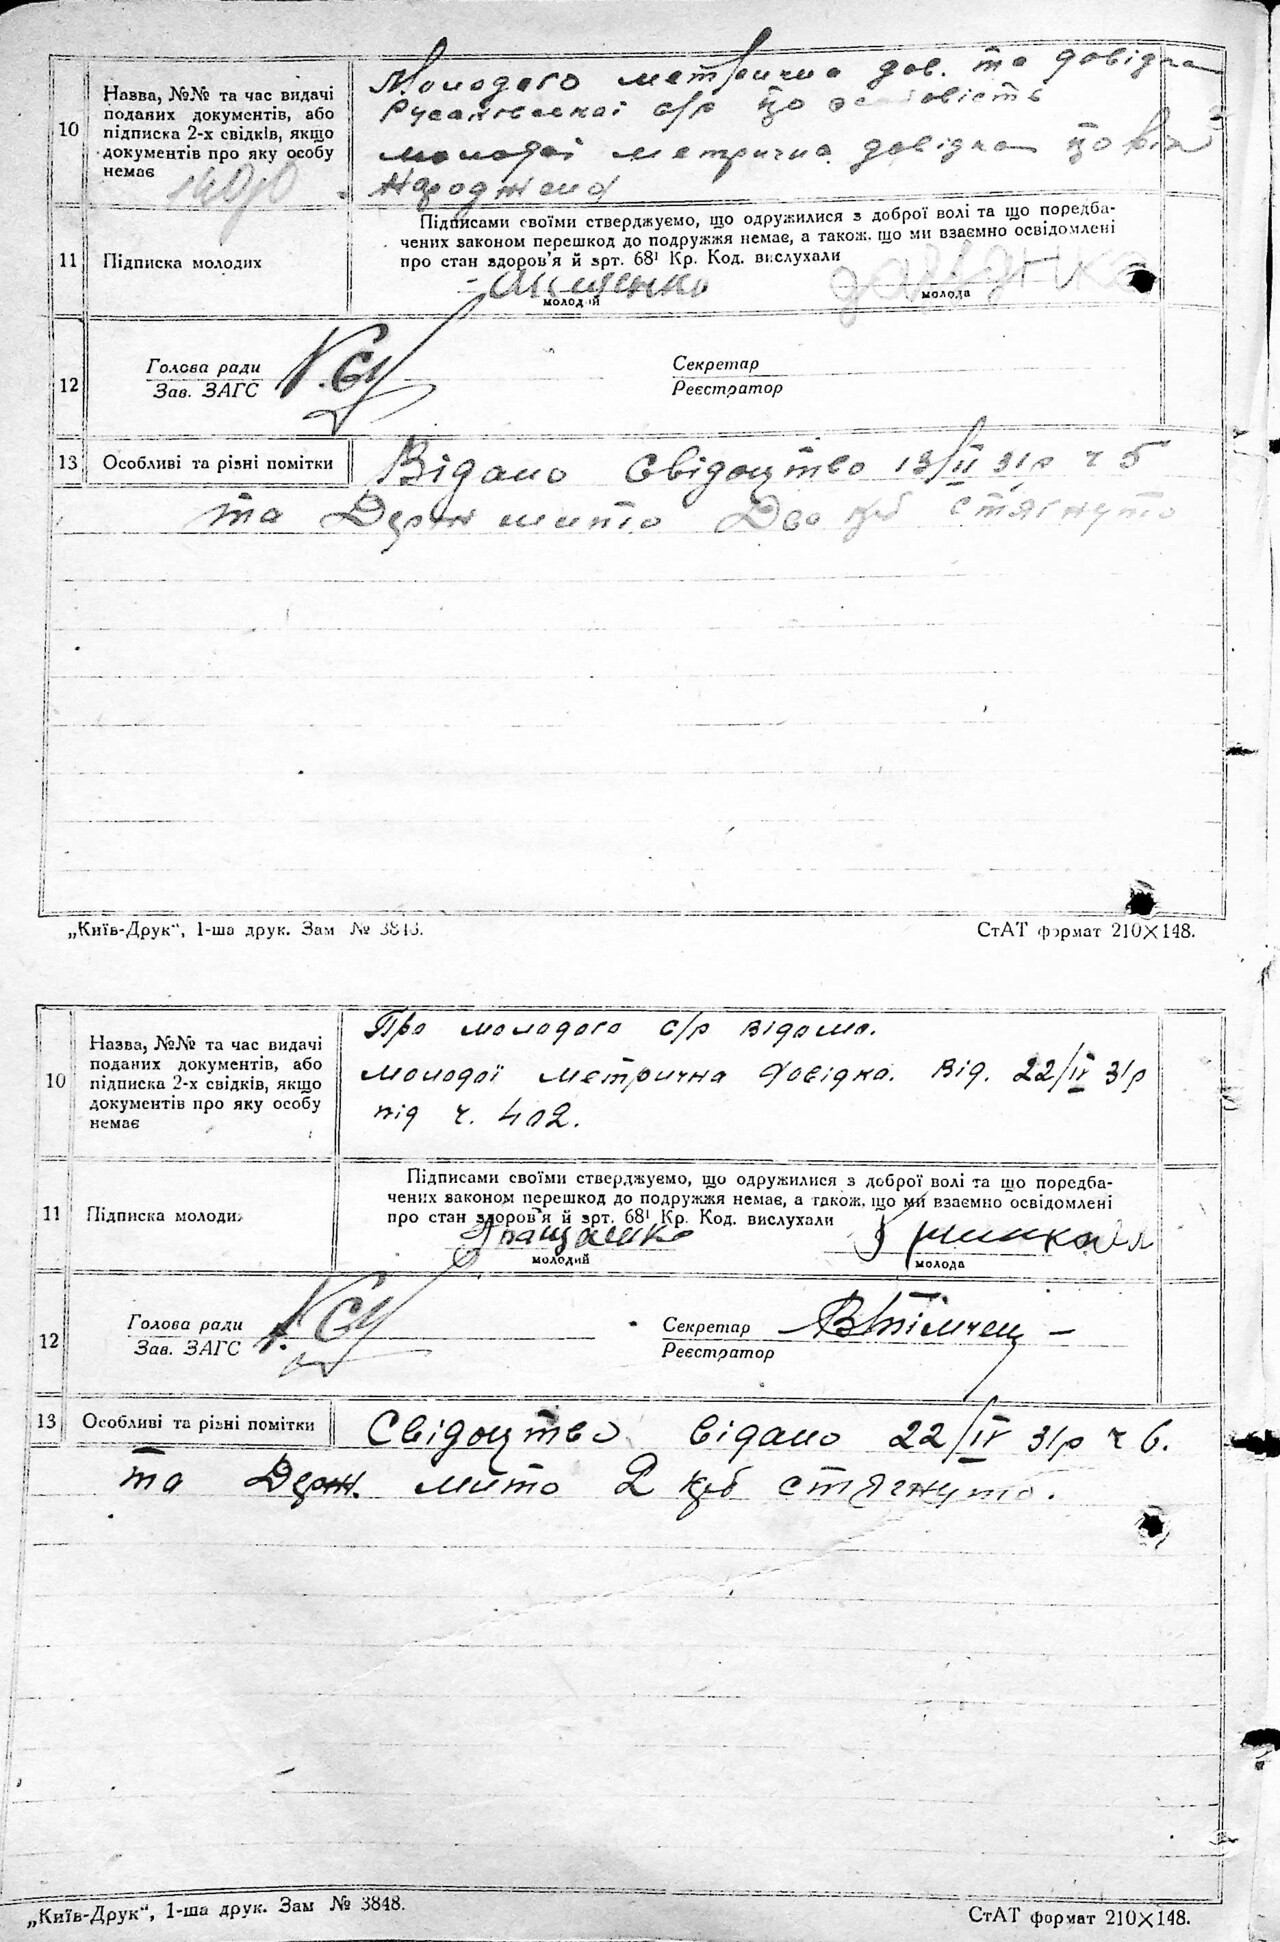 10
Назва, №№ та час видачі
поданих документів, або
підписка 2-х свідків, якщо
документів про яку особу
немає
Молодого метрична дов. та довідка
с/р що
молодої метрична довідка що
Народжена
11
Підписка молодих
Підписами своїми стверджуємо, що одружилися з доброї волі та що поредба-
чених законом перешкод до подружжя немає, а також, що ми взаємно освідомлені
про стан здоров'я й зрт. 68¹ Кр. Код. вислухали
молодий
молода
12
Голова ради
Зав. ЗАГС
Секретар
Реєстратор
13
Особливі та різні помітки
Відано Свідоцтво 13/II 31р ч 5
та Держ мито Два крб стягнуто
„Київ-Друк“, 1-ша друк. Зам №
СтАТ формат 210×148.
10
Назва, №№ та час видачі
поданих документів, або
підписка 2-х свідків, якщо
документів про яку особу
немає
Про молодого с/р відомо.
молодої метрична довідка. Від. 22/IV 31р
під ч. 402.
11
Підписка молодих
Підписами своїми стверджуємо, що одружилися з доброї волі та що поредба-
чених законом перешкод до подружжя немає, а також, що ми взаємно освідомлені
про стан здоров'я й зрт. 68¹ Кр. Код. вислухали
молодий
молода
12
Голова ради
Зав. ЗАГС
Секретар
Реєстратор
13
Особливі та різні помітки
Свідоцтво відано 22/IV 31р ч 6.
та Держ. мито 2 крб стягнуто.
„Київ-Друк“, 1-ша друк. Зам № 3848.
СтАТ формат 210×148.